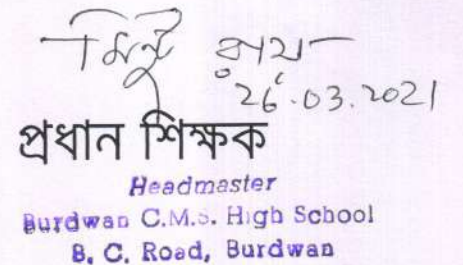 মিন্টু রায়
26.03.2021
প্রধান শিক্ষক
Headmaster
Burdwan C.M.S. High School
B. C. Road, Burdwan